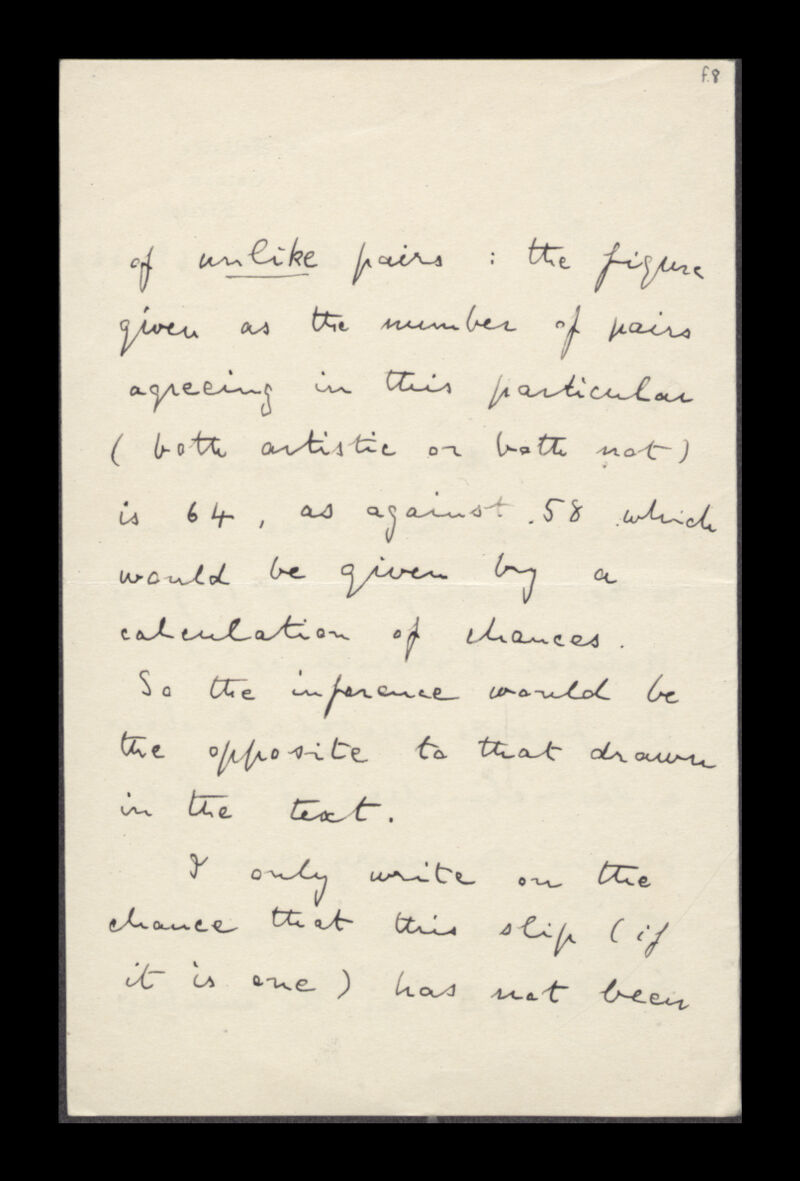 f.8
of unlike pairs : the figure
given as the number of pairs
agreeing in this particular
( both artistic or both not )
is 64 , as against .58 which
would be given by a
calculation of chances .
So the inference would be
the opposite to that drawn
in the text .
I only write on the
chance that this slip ( if
it is one ) has not been